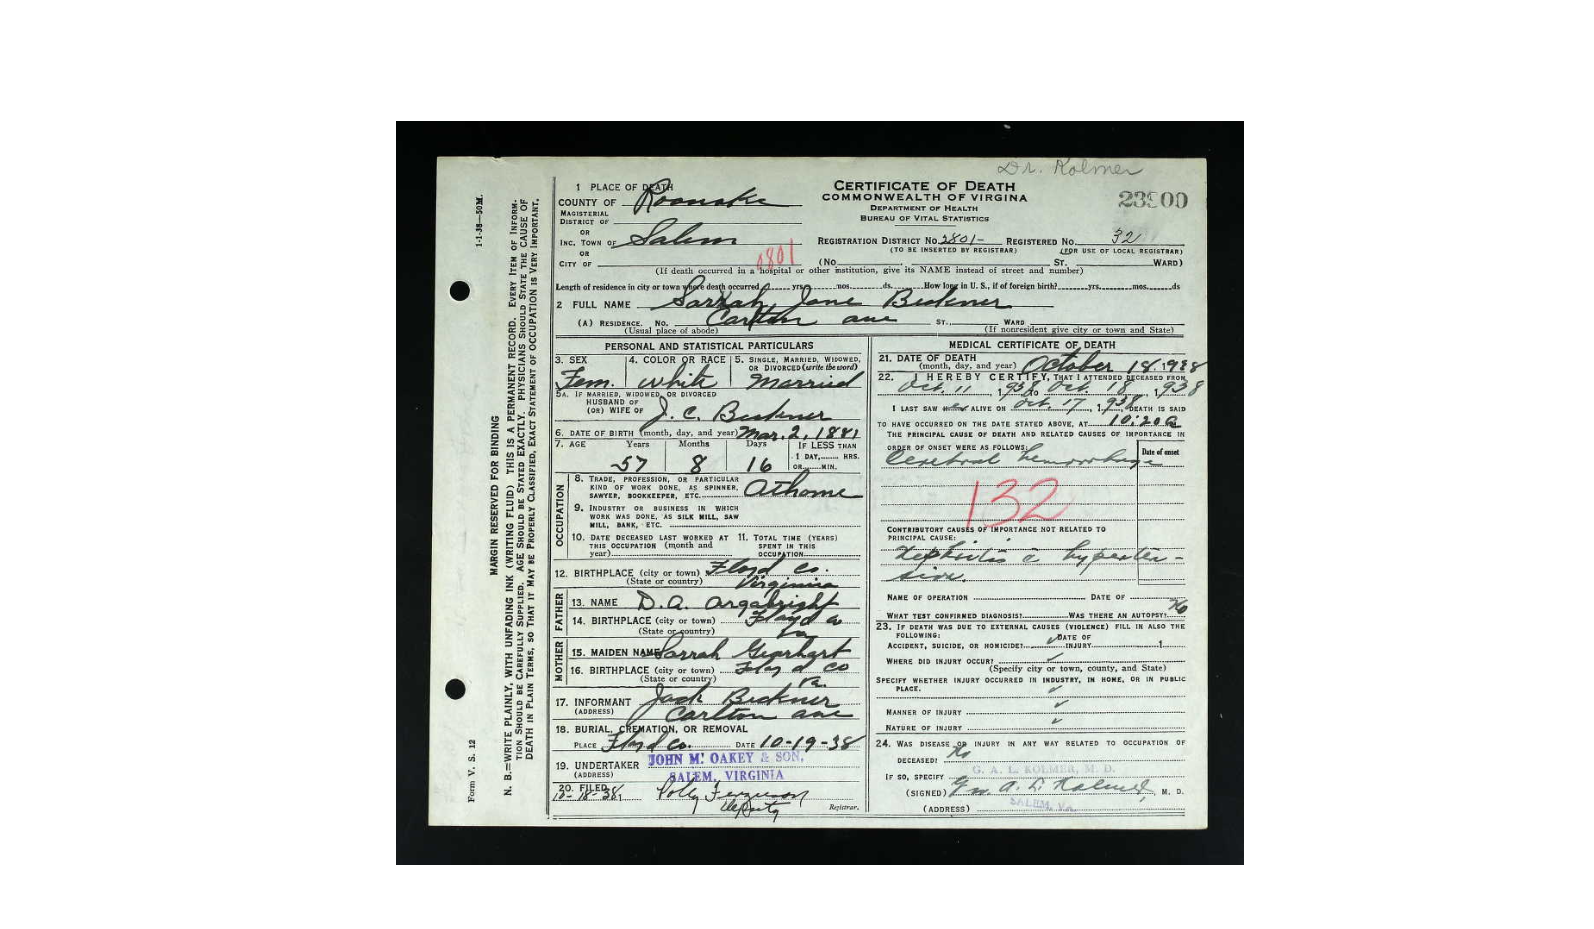 Dr. Kolmer
1 PLACE OF DEATH
COUNTY OF Roanoke
MAGISTERIAL
DISTRICT OF
OR
INC. TOWN OF Salem
OR
CITY OF
0801
CERTIFICATE OF DEATH
COMMONWEALTH OF VIRGINIA
DEPARTMENT OF HEALTH
BUREAU OF VITAL STATISTICS
23900
REGISTRATION DISTRICT No. 2801- REGISTERED No. 32
(TO BE INSERTED BY REGISTRAR) (FOR USE OF LOCAL REGISTRAR)
(No. ST. WARD)
(If death occurred in a hospital or other institution, give its NAME instead of street and number)
Length of residence in city or town where death occurred yrs. mos. ds. How long in U. S., if of foreign birth? yrs. mos. ds
2 FULL NAME Sarrah Jane Beckner
(A) RESIDENCE. No. Carlton ave ST., WARD
(Usual place of abode) (If nonresident give city or town and State)
PERSONAL AND STATISTICAL PARTICULARS
3. SEX Fem.
4. COLOR OR RACE white
5. SINGLE, MARRIED, WIDOWED, OR DIVORCED (write the word) Married
5A. IF MARRIED, WIDOWED, OR DIVORCED
HUSBAND OF
(OR) WIFE OF J. C. Beckner
6. DATE OF BIRTH (month, day, and year) Mar. 2, 1881
7. AGE Years Months Days IF LESS THAN
1 DAY, HRS.
OR MIN.
57 8 16
OCCUPATION
8. TRADE, PROFESSION, OR PARTICULAR
KIND OF WORK DONE, AS SPINNER,
SAWYER, BOOKKEEPER, ETC. At home
9. INDUSTRY OR BUSINESS IN WHICH
WORK WAS DONE, AS SILK MILL, SAW
MILL, BANK, ETC.
10. DATE DECEASED LAST WORKED AT
THIS OCCUPATION (month and
year)
11. TOTAL TIME (YEARS)
SPENT IN THIS
OCCUPATION
12. BIRTHPLACE (city or town) Floyd Co.
(State or country) Virginia
FATHER
13. NAME D. A. Argabright
14. BIRTHPLACE (city or town) Floyd Co
(State or country) Va
MOTHER
15. MAIDEN NAME Sarrah Gearhart
16. BIRTHPLACE (city or town) Floyd Co
(State or country) Va.
17. INFORMANT Jack Beckner
(ADDRESS) Carlton ave
18. BURIAL, CREMATION, OR REMOVAL
PLACE Floyd Co. DATE 10-19-38
19. UNDERTAKER JOHN M. OAKEY & SON,
(ADDRESS) SALEM, VIRGINIA
20. FILED 10-18-38, Polly Ferguson
deputy Registrar.
MEDICAL CERTIFICATE OF DEATH
21. DATE OF DEATH
(month, day, and year) October 18, 1938
22. I HEREBY CERTIFY, THAT I ATTENDED DECEASED FROM
Oct. 11, 1938 to Oct. 18, 1938
I LAST SAW her ALIVE ON Oct. 17, 1938, DEATH IS SAID
TO HAVE OCCURRED ON THE DATE STATED ABOVE, AT 10:20a
THE PRINCIPAL CAUSE OF DEATH AND RELATED CAUSES OF IMPORTANCE IN
ORDER OF ONSET WERE AS FOLLOWS: Date of onset
Cerebral hemorrhage
132
CONTRIBUTORY CAUSES OF IMPORTANCE NOT RELATED TO
PRINCIPAL CAUSE:
Nephritis c̄ hyperten-
sion
NAME OF OPERATION DATE OF
WHAT TEST CONFIRMED DIAGNOSIS? WAS THERE AN AUTOPSY? No
23. IF DEATH WAS DUE TO EXTERNAL CAUSES (VIOLENCE) FILL IN ALSO THE
FOLLOWING:
ACCIDENT, SUICIDE, OR HOMICIDE? DATE OF INJURY 1
WHERE DID INJURY OCCUR?
(Specify city or town, county, and State)
SPECIFY WHETHER INJURY OCCURRED IN INDUSTRY, IN HOME, OR IN PUBLIC
PLACE.
MANNER OF INJURY
NATURE OF INJURY
24. WAS DISEASE OR INJURY IN ANY WAY RELATED TO OCCUPATION OF
DECEASED? No
G. A. L. KOLMER, M. D.
IF SO, SPECIFY
(SIGNED) Geo. A. L. Kolmer, M. D.
(ADDRESS) SALEM, VA.
1-1-38—50M.
MARGIN RESERVED FOR BINDING
N. B.—WRITE PLAINLY, WITH UNFADING INK (WRITING FLUID) THIS IS A PERMANENT RECORD. EVERY ITEM OF INFORM-
TION SHOULD BE CAREFULLY SUPPLIED. AGE SHOULD BE STATED EXACTLY. PHYSICIANS SHOULD STATE THE CAUSE OF
DEATH IN PLAIN TERMS, SO THAT IT MAY BE PROPERLY CLASSIFIED. EXACT STATEMENT OF OCCUPATION IS VERY IMPORTANT.
Form V. S. 12